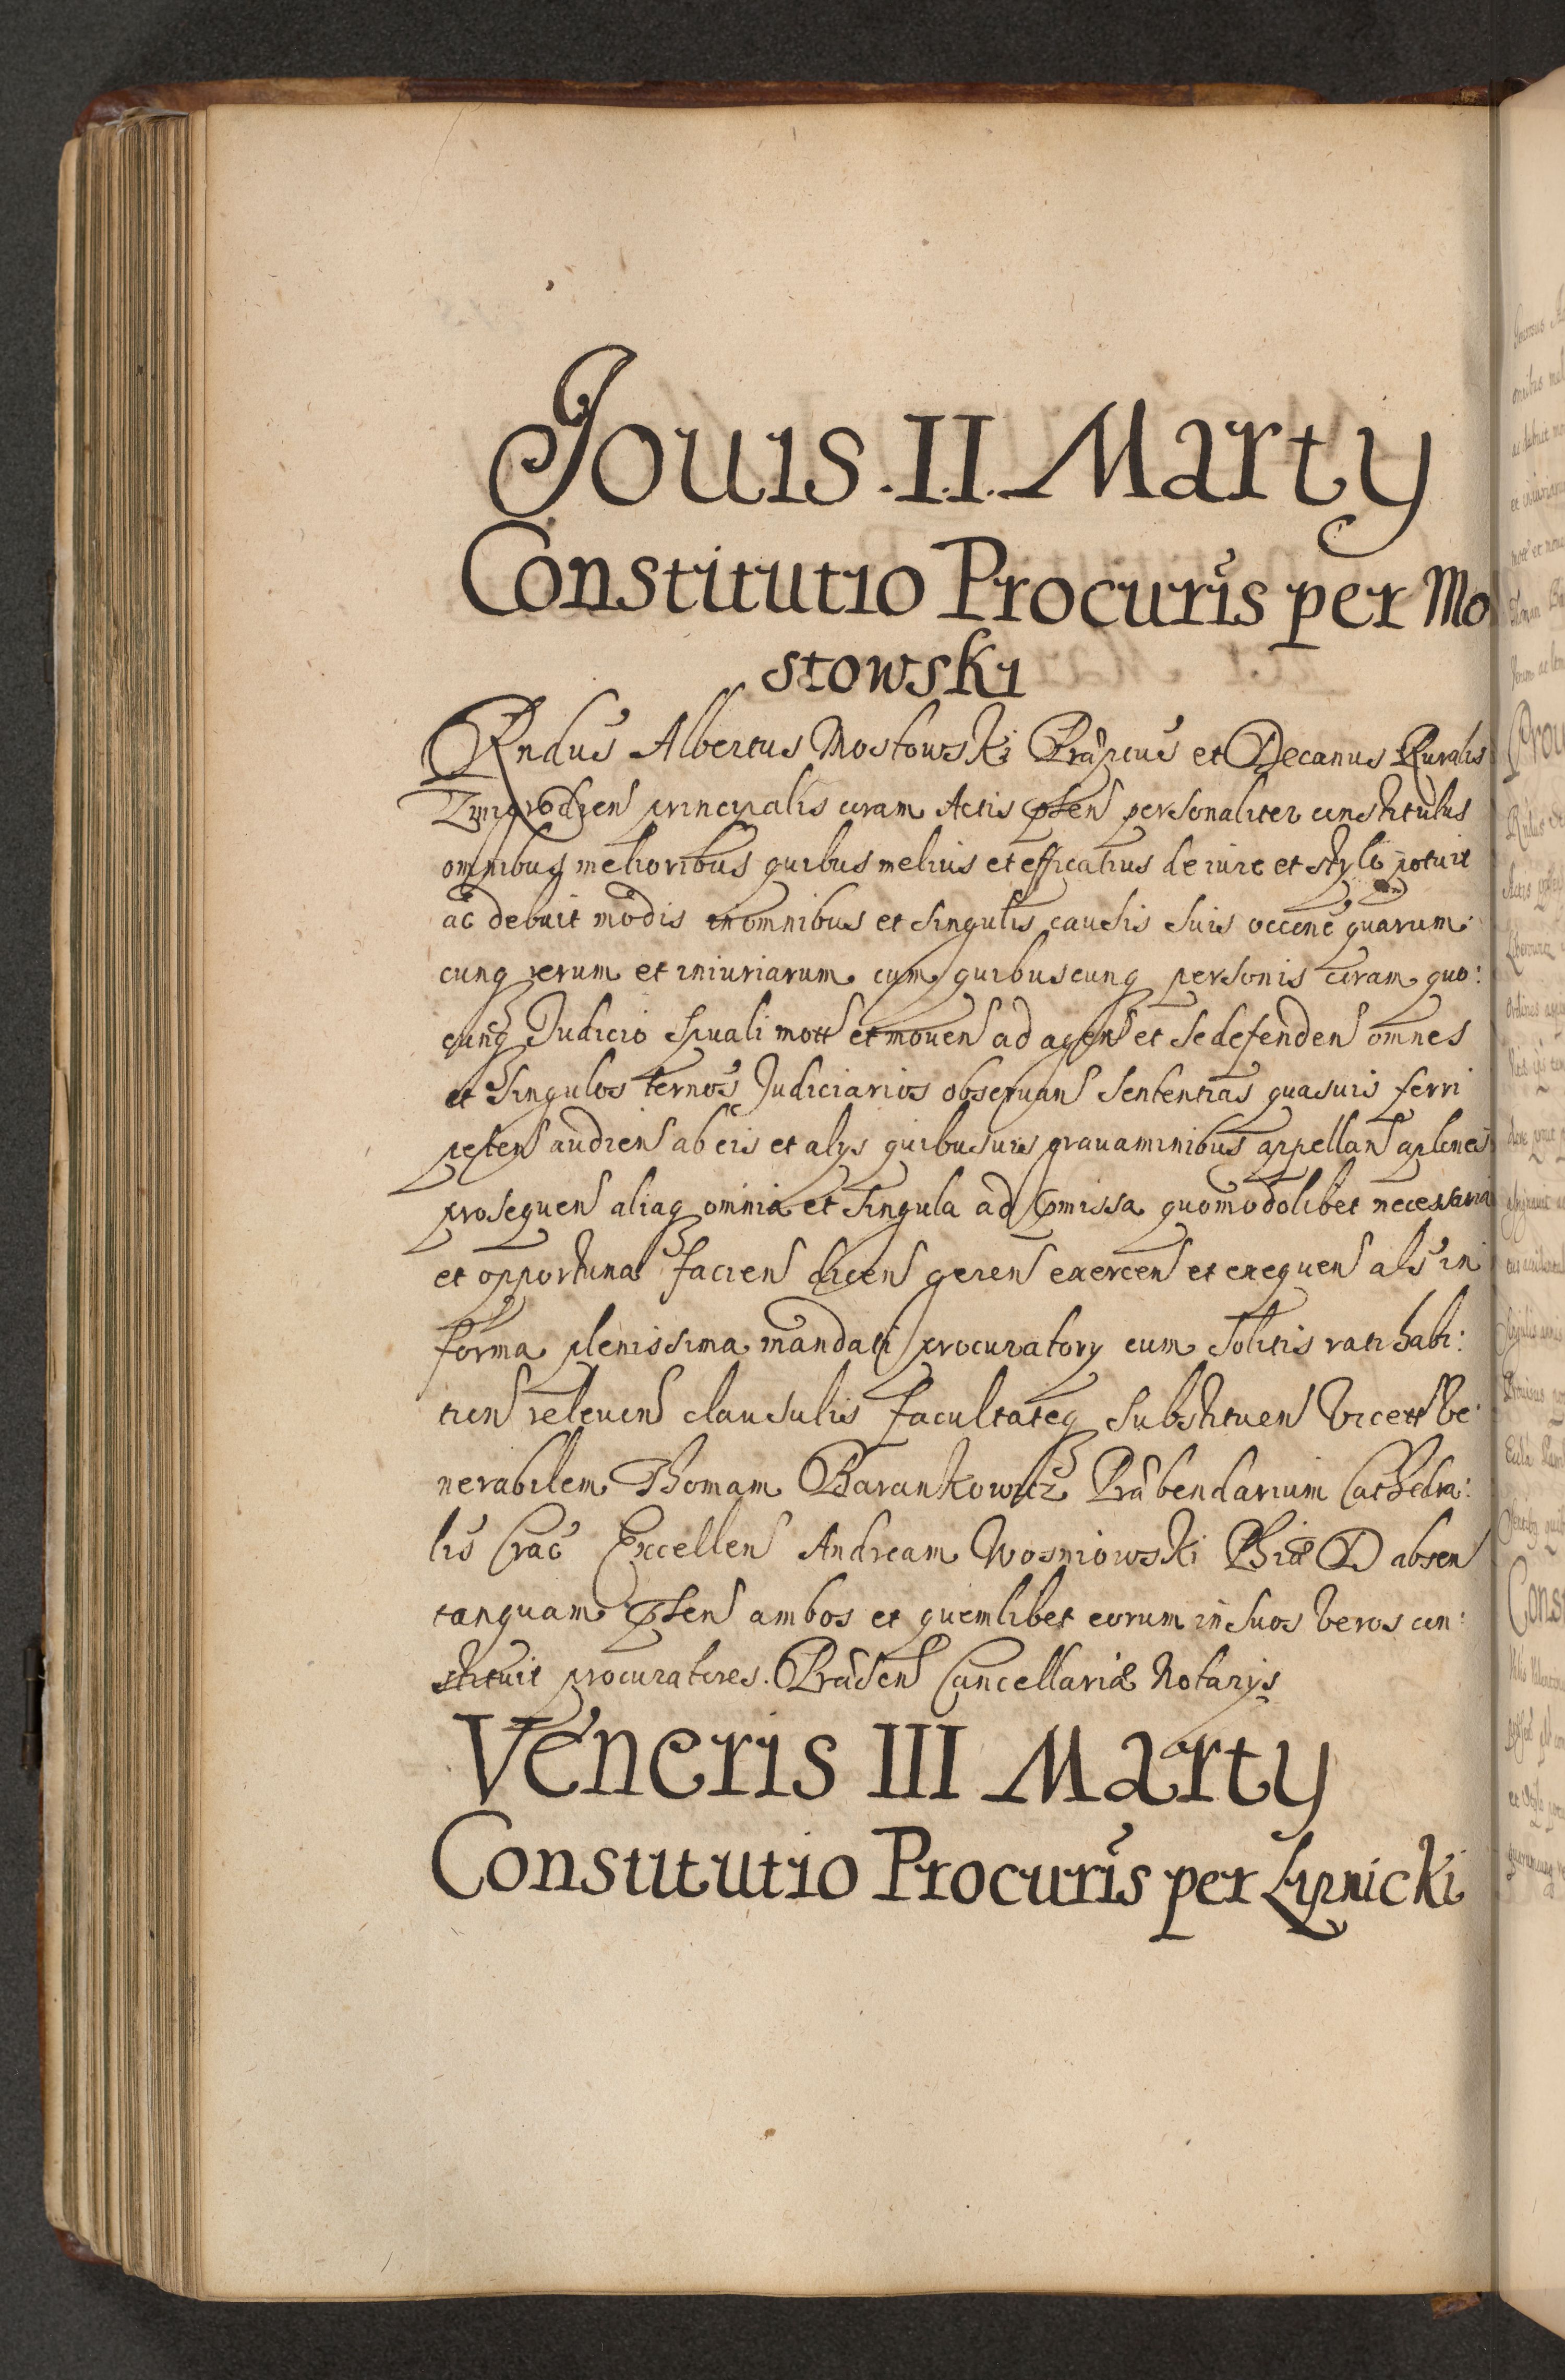 Jouis .II. Marty
Constitutio Procuris per Mo
stowski
Rndus Albertus Mostowski Præpcus et Decanus Ruralis
Zmigrodien principalis coram Actis psen personaliter constitutus
omnibus melioribus quibus melius et efficatius de iure et stylo potuit
ac debuit modis in omnibus et singulis causis suis occone quarum
cunq rerum et iniuriarum cum quibuscunq personis coram quo:
cunq Judicio spuali mott et mouen ad agen et se defenden omnes
et singulos ternos Judiciarios obseruan sententias quasuis ferri
peten audien ab eis et alys quibusuis grauaminibus appellan aplones
prosequen aliaq omnia et singula ad pmissa quomodolibet necessaria
et opportuna facien dicen geren exercen et exequen als in
forma plenissima mandati procuratory cum solitis rati habi:
tion releuen clausulis facultateq substituen Vicett Ve:
nerabilem Thomam Barankowitz Præbendarium Cathedra:
lis Crac Excellen Andream Wosniowski Phiæ D absen
tanquam psen ambos et quemlibet eorum in suos veros con:
stituit procuratores. Præsen Cancellariæ Notarys
Veneris III Marty
Constitutio Procuris per Lipnicki